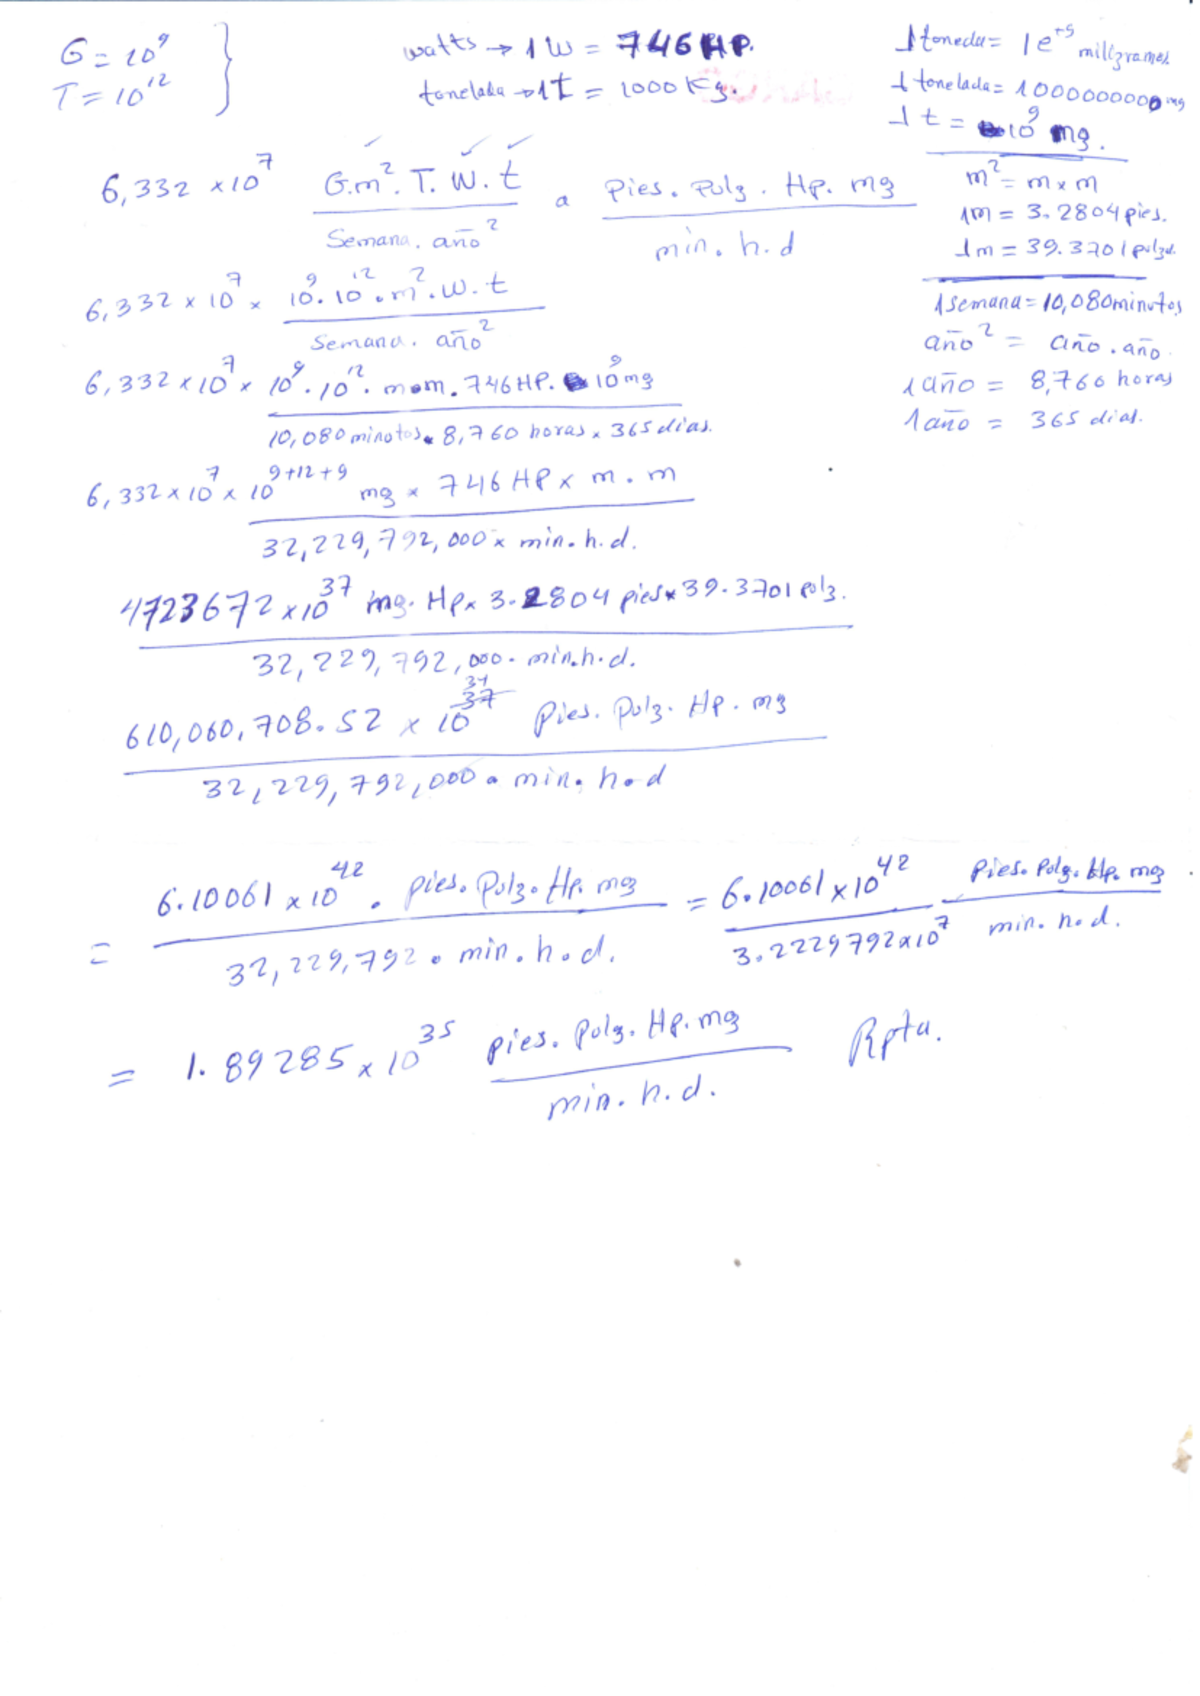 G = 10^9
T = 10^12
watts → 1 W = 746 HP.
tonelada → 1t = 1000 Kg.
1 toneda = 1e^+9 miligramos
1 tonelada = 1000000000 mg
1 t = 10^9 mg.
m^2 = m x m
1m = 3.2804 pies.
1m = 39.3701 pulzd.
1 semana = 10,080 minutos
año^2 = año . año.
1 año = 8,760 horas
1 año = 365 dias.
6,332 x 10^7 G.m^2. T. W. t / Semana. año^2 a Pies. Pulg. Hp. mg / min. h. d
6,332 x 10^7 x 10^9. 10^12. m^2. W. t / Semana. año^2
6,332 x 10^7 x 10^9. 10^12. m.m. 746 HP. 10^9 mg / 10,080 minutos x 8,760 horas x 365 dias.
6,332 x 10^7 x 10^9+12+9 mg x 746 HP x m . m / 32,229,792,000 x min. h. d.
4723672 x 10^37 mg. Hp x 3.2804 pies x 39.3701 Polz. / 32,229,792,000. min.h.d.
610,060,708.52 x 10^34 Pies. Pulz. Hp. mg / 32,229,792,000 . min. h. d
= 6.10061 x 10^42 . pies. Pulz. Hp. mg / 32,229,792 . min. h. d. = 6.10061 x 10^42 / 3.2229792 x 10^7 Pies. Polg. Hp. mg / min. h. d.
= 1.89285 x 10^35 pies. Polg. Hp. mg / min. h. d. Rpta.